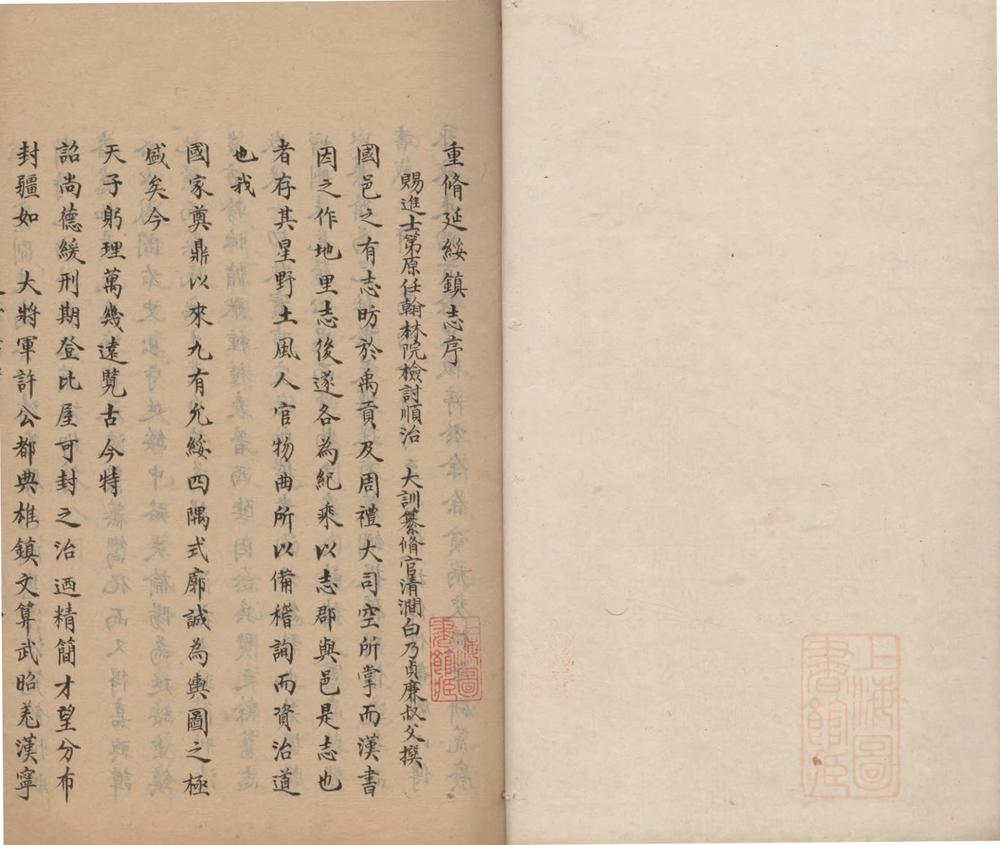 重脩延綏鎮志序
賜進士第原任翰林院檢討順治　大訓纂脩官清澗白乃貞廉叔父撰
國邑之有志昉於禹貢及周禮大司空所掌而漢書
因之作地里志後遂各為紀乘以志郡與邑是志也
者存其星野土風人官物曲所以備稽詢而資治道
也我
國家奠鼎以來九有允綏四隅式廓誠為輿圖之極
盛矣今
天子躬理萬幾遠覽古今特
詔尚德緩刑期登比屋可封之治迺精簡才望分布
封疆如　大將軍許公都典雄鎮文算武昭羌漢寧
上海圖書館藏
上海圖書館藏